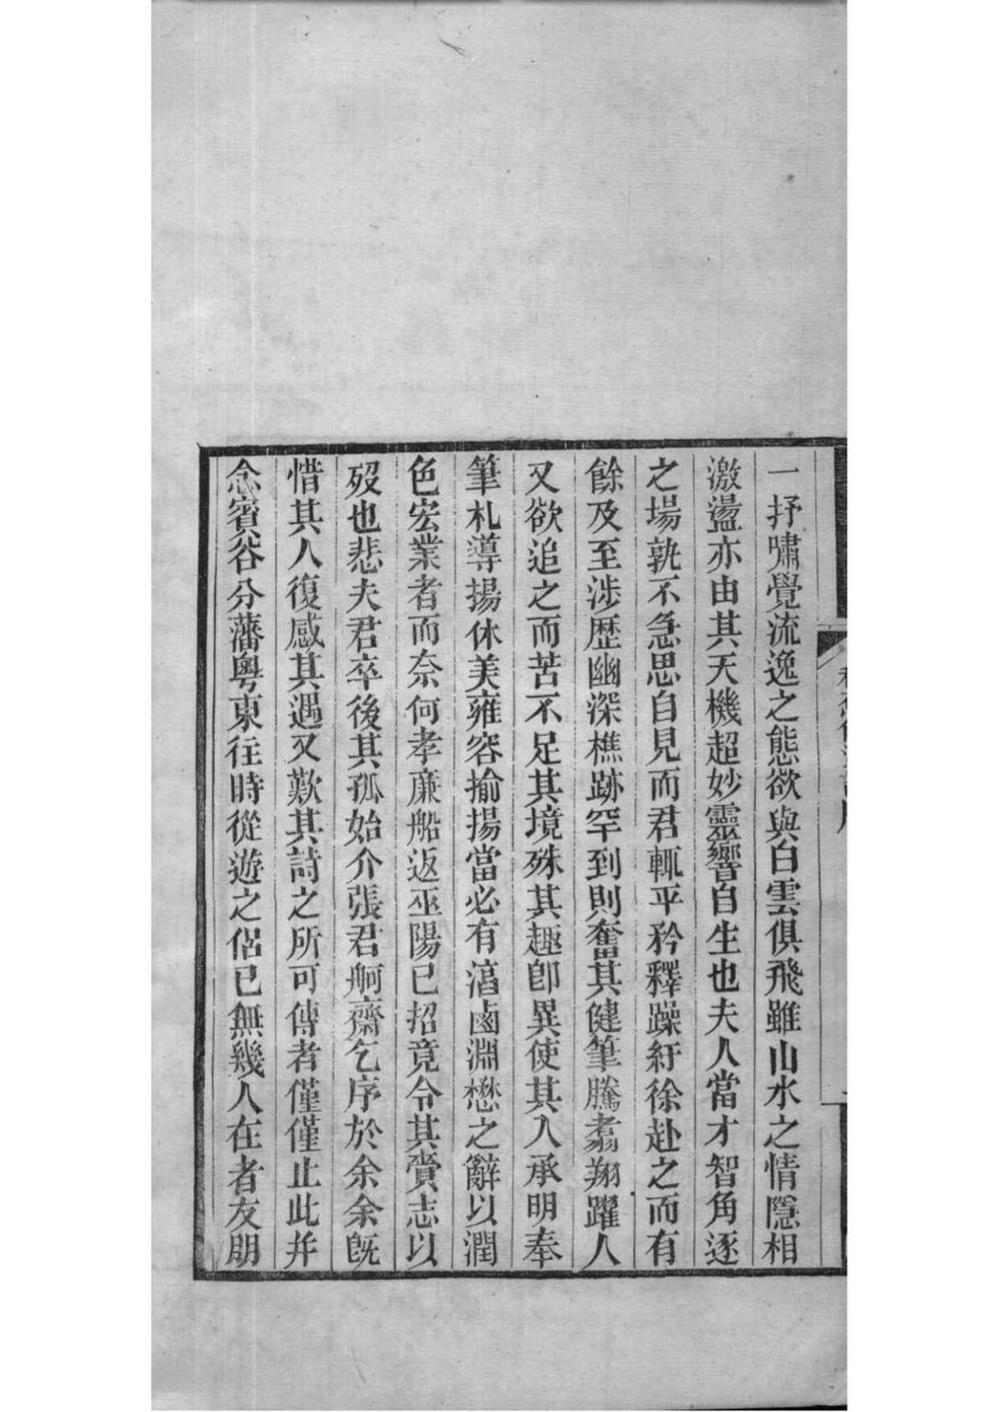 一抒嘯覺流逸之態欲與白雲俱飛雖山水之情隱相
激盪亦由其天機超妙靈響自生也夫人當才智角逐
之場孰不急思自見而君輒平矜釋躁紆徐赴之而有
餘及至涉歷幽深樵跡罕到則奮其健筆騰翥翔躍人
又欲追之而苦不足其境殊其趣卽異使其入承明奉
筆札導揚休美雍容揄揚當必有滀鹵淵懋之辭以潤
色宏業者而奈何孝廉船返巫陽已招竟令其賫志以
歿也悲夫君卒後其孤始介張君舸齋乞序於余余旣
惜其人復感其遇又歎其詩之所可傳者僅僅止此幷
念賓谷分藩粵東往時從遊之侶已無幾人在者友朋